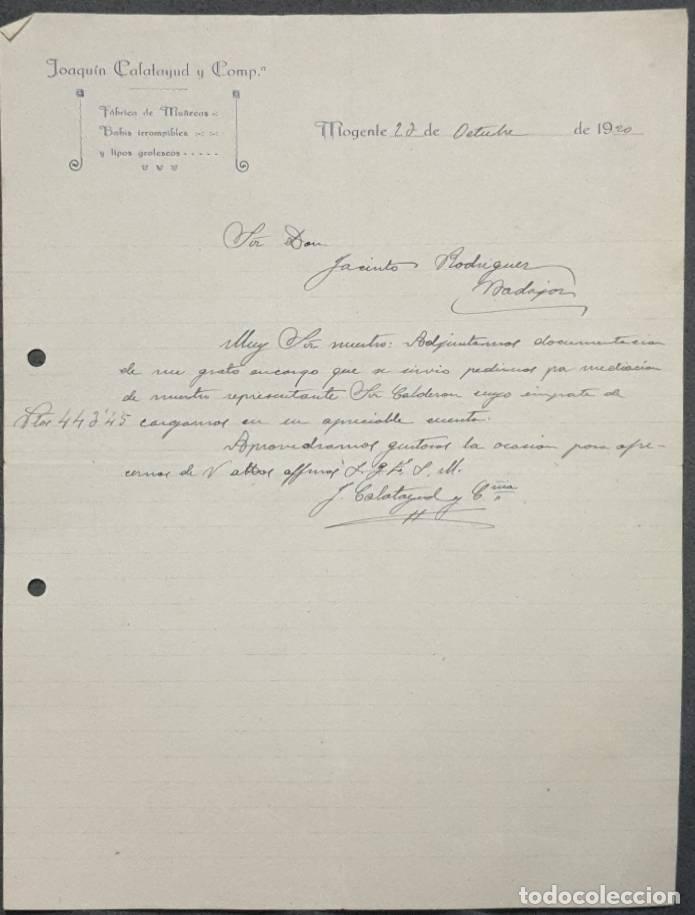 Joaquín Calatayud y Comp.ª
Fábrica de Muñecas
Bebés irrompibles
y tipos grotescos
Mogente 23 de Octubre de 1920
Sr. Don
Jacinto Rodriguez
Badajoz
Muy Sr. nuestro: Adjuntamos documentacion
de su grato encargo que se envio pedimos por mediacion
de nuestro representante Sr. Calderon cuyo importe de
Ptas 443'45 cargamos en su apreciable cuenta.
Aprovechamos gustosos la ocasion para ofre-
cernos de V attos affmos S. M.
J. Calatayud y Cia
todocoleccion